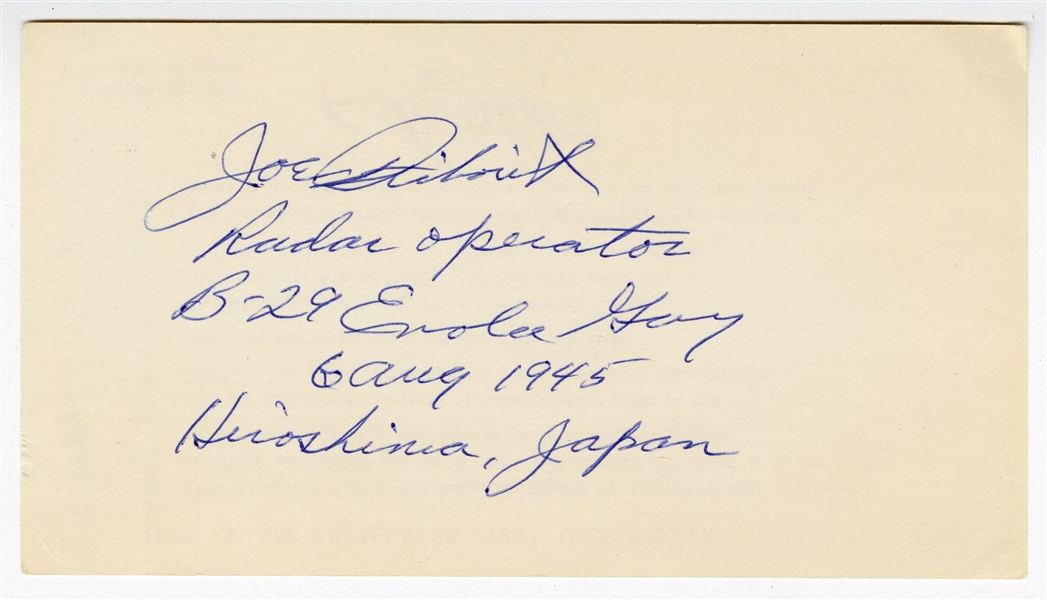 Joe Stiborik
Radar operator
B-29 Enola Gay
6 Aug 1945
Hiroshima, Japan